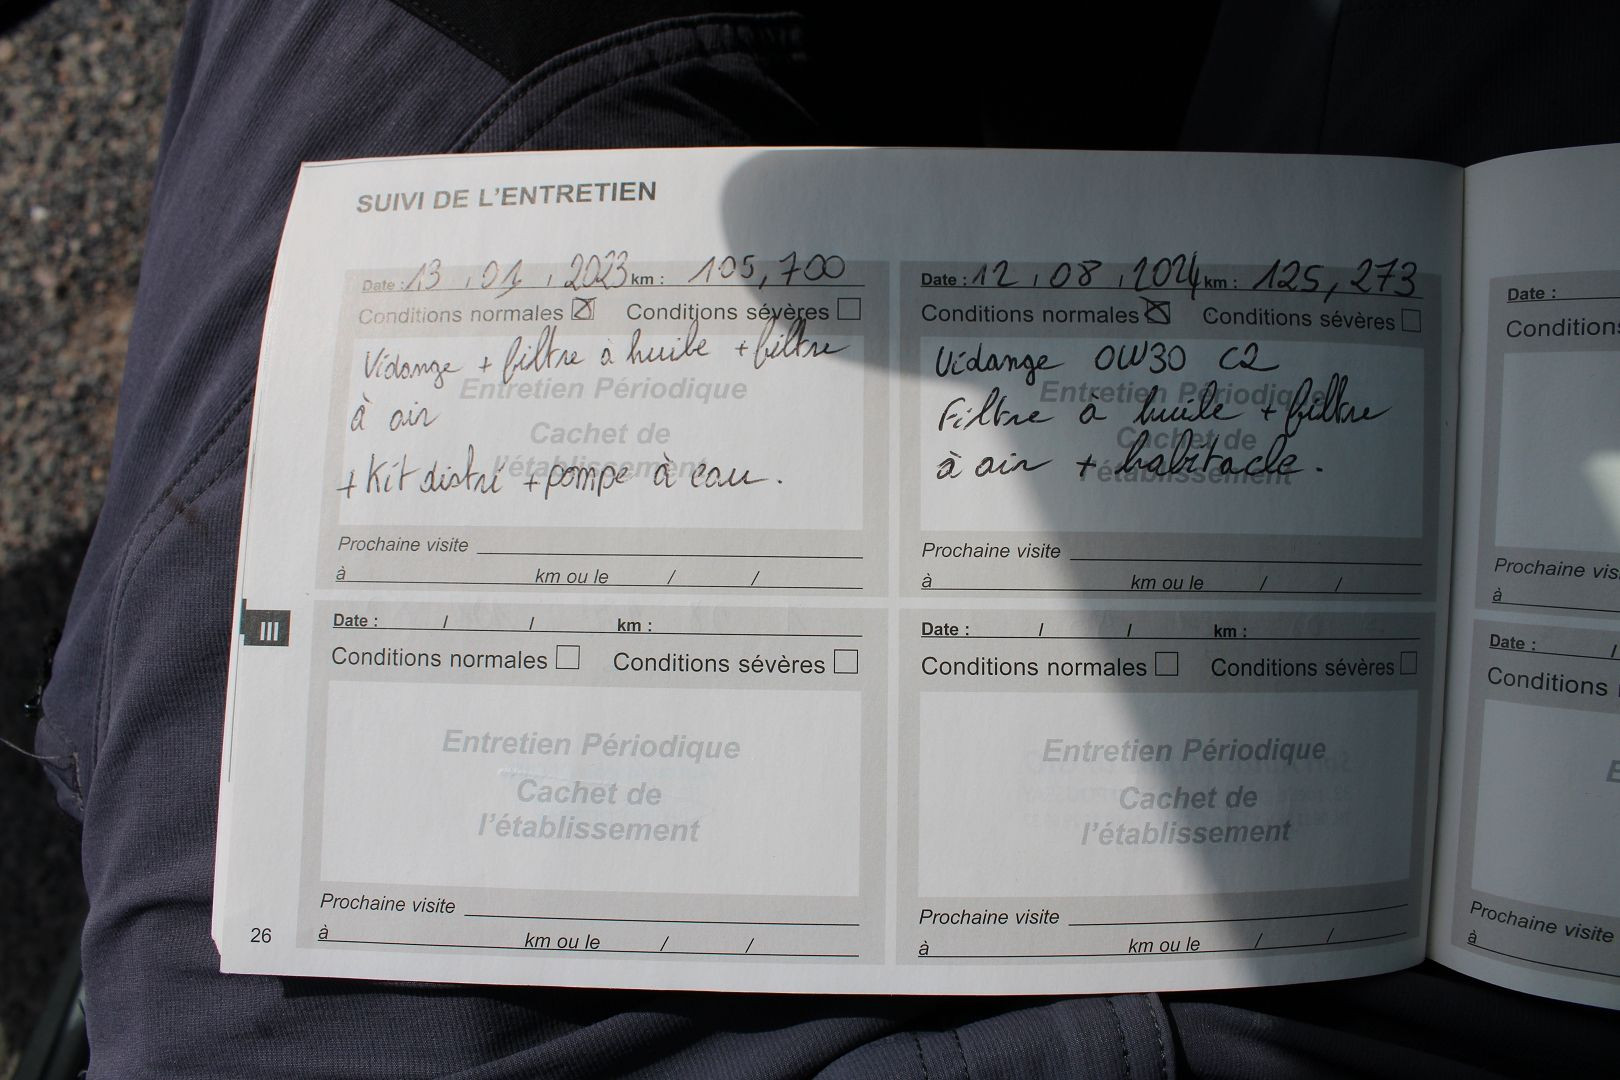 SUIVI DE L'ENTRETIEN
Date : 13 / 01 / 2023 km : 105,700
Conditions normales ☒ Conditions sévères ☐
Vidange + filtre à huile + filtre
à air
+ Kit distri + pompe à eau.
Entretien Périodique
Cachet de
l'établissement
Prochaine visite
à km ou le / /
Date : 12 / 08 / 2024 km : 125,273
Conditions normales ☒ Conditions sévères ☐
Vidange 0W30 C2
Filtre à huile + filtre
à air + habitacle.
Entretien Périodique
Cachet de
l'établissement
Prochaine visite
à km ou le / /
Date : / / km :
Conditions normales ☐ Conditions sévères ☐
Entretien Périodique
Cachet de
l'établissement
Prochaine visite
à km ou le / /
Date : / / km :
Conditions normales ☐ Conditions sévères ☐
Entretien Périodique
Cachet de
l'établissement
Prochaine visite
à km ou le / /
III
26
Date :
Conditions
Prochaine vis
à
Date : /
Conditions
E
Prochaine visite
à